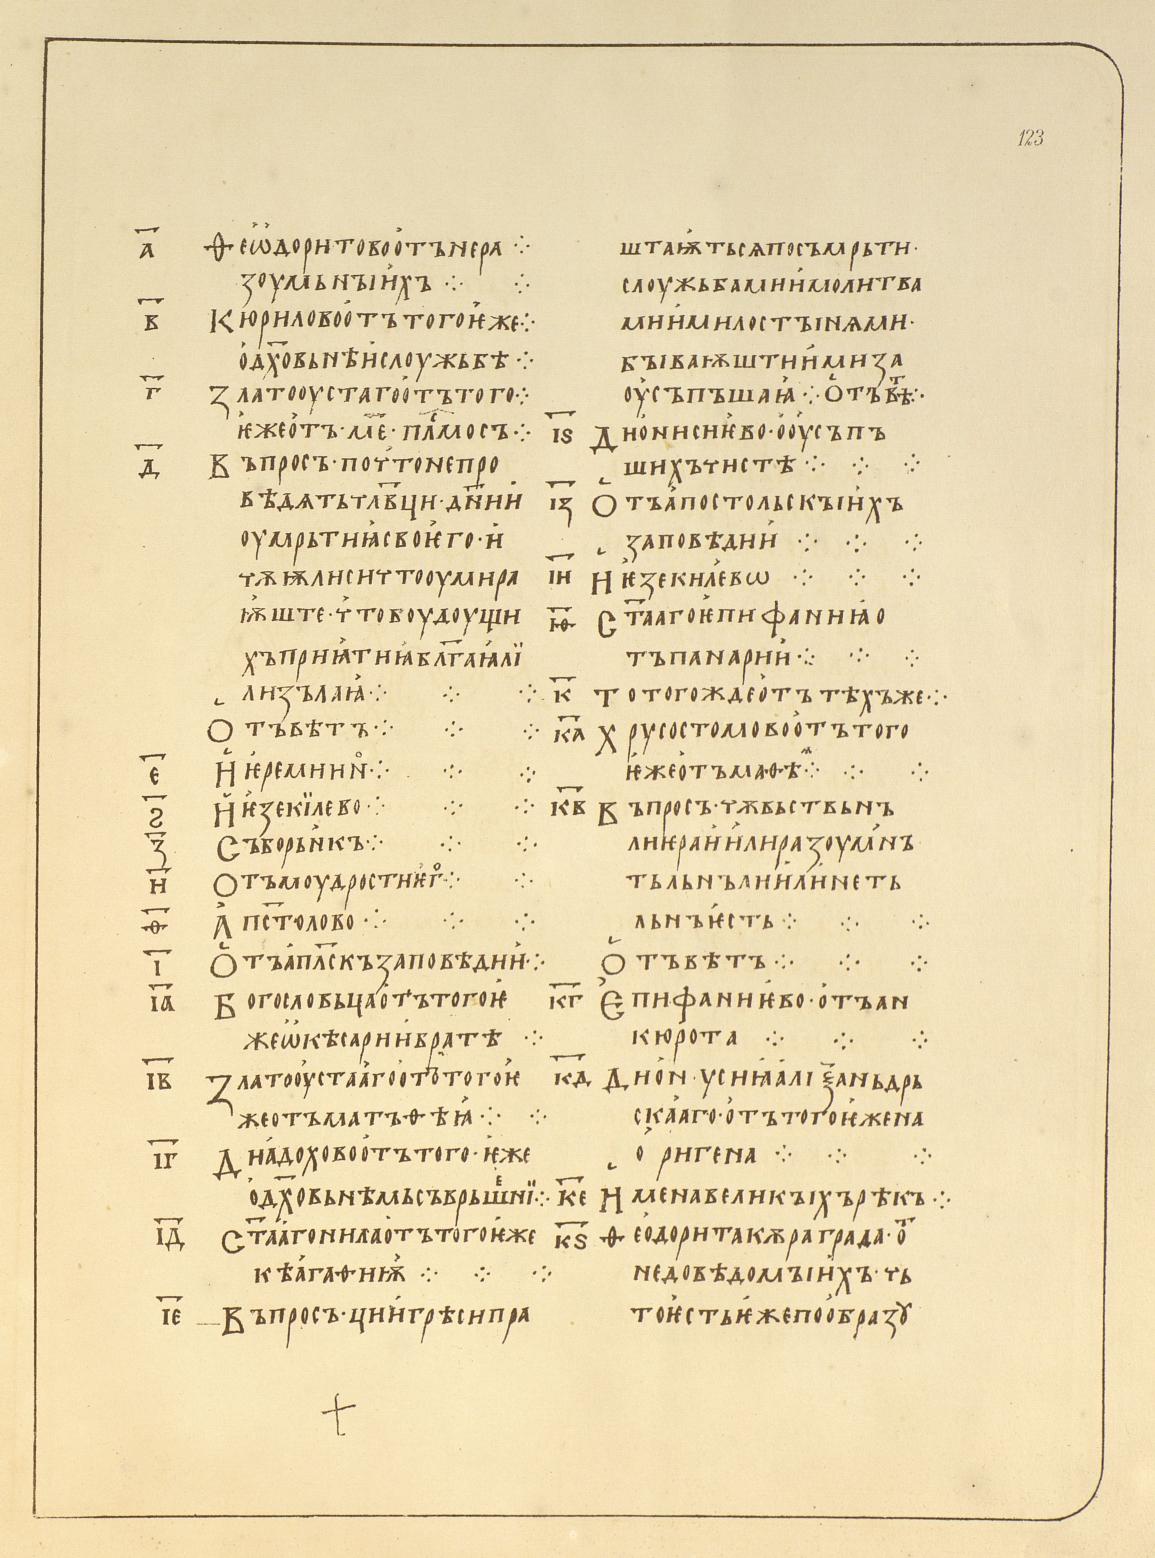 123
а҃ Ѳеѡ҅доритово о҅тъ нера ⁘
зоумьныи҅хъ ⁘ ⁘
в҃ Кюрилово о҅тъ того ѥ҅же ⁘
о҅ дх҃овьнѣи҅ слоужьбѣ ⁘
г҃ Златооустаго о҅тъ того ⁘
ѥ҅же о҅тъ · ме҃ · пⷭ҇алмосъ ⁘
д҃ Въпросъ · по чьто не про
вѣдѧтъ чл҃вци · дн҃ии҅
оумрьтиꙗ҅ своѥ҅го · и҅
чѫѭ҅ лиси что оумира
ѭ҅ште · ч҅то боудоущи
хъ приꙗ҅тиꙗ бл҃гаꙗ҅ лї
ли зълаꙗ҅ ⁘ ⁘ ⁘
Отъвѣтъ ⁘ ⁘ ⁘
е҃ И҅ѥремиино ⁘ ⁘ ⁘
ѕ҃ И҅ѥзекїлево ⁘ ⁘ ⁘
з҃ Съборьникъ ⁘ ⁘ ⁘
и҃ Отъ моудростиѥ҅го ⁘ ⁘
ѳ҃ А҅пст҃олово ⁘ ⁘ ⁘
і҃ О҅тъ а҅пл҃скъ заповѣдии҅ ⁘
іа҃ Богословьца о҅тъ того ѥ҅
же ѡ҅ кѣсарии҅ братѣ ⁘
ів҃ Златооу҅стааго о҅тъ того ѥ҅
же отъ матъѳѣꙗ҅ ⁘ ⁘
іг҃ Диа҅дохово о҅тъ того · ѥ҅же
о҅ дх҃овьнѣмь съврьшенї ⁘
ід҃ Ст҃аа҅го нила о҅тъ того ѥ҅же
къ а҅гаѳиѭ҅ ⁘ ⁘ ⁘
іе҃ Въпросъ · ции҅ грѣси пра
штаѭ҅ тьсѧ по съмрьти ·
слоужьбами и҅ молитва
ми и҅ милостыінѧми ·
бываѭштиим҅и за
оу҅съпъшаꙗ҅ ⁘ О҅твѣⷮ ⁘
іѕ҃ Дио҅нисиѥ҅во · о҅ оу҅съпъ
шихъ чистѣ ⁘ ⁘ ⁘
із҃ О҅тъ а҅постольскыіи҅хъ
заповѣдии҅ ⁘ ⁘ ⁘
іи҃ И҅ѥзекилевѡ ⁘ ⁘ ⁘
іѳ҃ Ст҃ааго ѥ҅пифанииꙗ҅ о
тъ панарии҅ ⁘ ⁘ ⁘
к҃ Тотогожде о҅тъ тѣхъже ⁘
ка҃ Хрусостомово о҅тъ того
ѥ҅же о҅тъ маѳѣⷶ ⁘ ⁘ ⁘
кв҃ Въпросъ · чѫвьствьнъ
ли ѥ҅ раи҅ и҅ли разоум҅ьнъ
тьльнъ ли и҅ли҅ нетъ
льнъ ѥ҅сть ⁘ ⁘ ⁘
О҅тъвѣтъ ⁘ ⁘ ⁘
кг҃ Е҅пифанииѥ҅во · о҅тъ ан
кюрота ⁘ ⁘ ⁘
кд҃ Дио҅н · усиꙗ҅ а҅лі ѯаньдрь
скаа҅го · о҅тъ того ѥ҅же на
о҅ригена ⁘ ⁘ ⁘
ке҃ Имена великыіхъ рѣкъ ⁘
кѕ҃ Ѳео҅дорита кѫра града · о҅ⷮ
недовѣдомыіи҅хъ · чь
то ѥ҅сть ѥ҅же по о҅бразꙋ